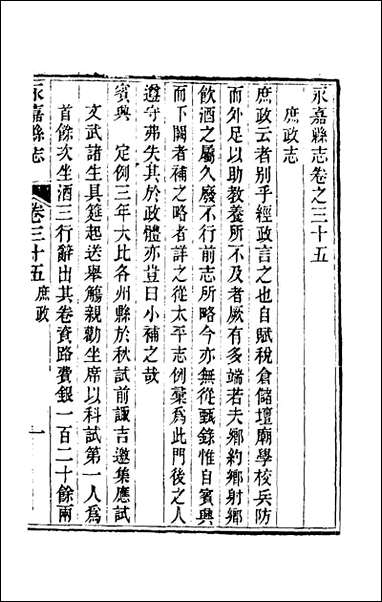 永嘉縣志卷之三十五
庶政志
庶政云者别乎經政言之也自賦稅倉儲壇廟學校兵防
而外足以助敎養所不及者厥有多端若夫鄉約鄉射鄉
飮酒之屬久廢不行前志所略今亦無從甄錄惟自賓興
而下闕者補之略者詳之從太平志例彚爲此門後之人
遵守弗失其於政體亦豈曰小補之哉
賓興　定例三年大比各州縣於秋試前諏吉邀集應試
文武諸生具筵起送舉觴親勸坐席以科試第一人爲
首餘次坐酒三行辭出其卷資路費銀一百二十餘兩
永嘉縣志　卷三十五　庶政　一